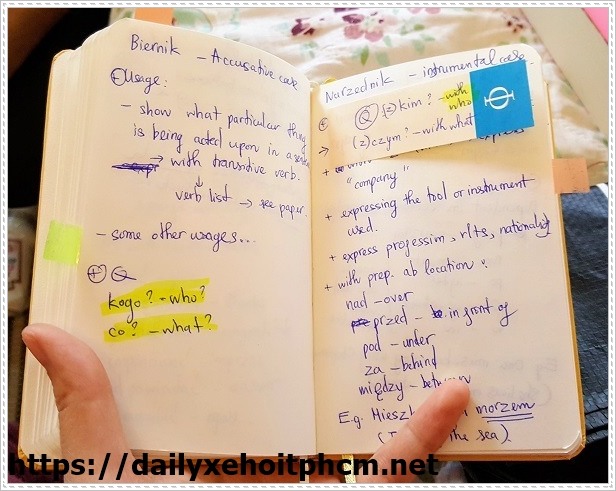 Biernik – Accusative case
+ Usage:
– show what particular thing
is being acted upon in a
→ with transitive verb.
verb list → see paper.
– some other usages...
+ Q
kogo? – who?
co? – what?
Narzednik – instrumental case.
+ Q (z) kim? – with
who
→ (z) czym? – with what
"company"
+ expressing the tool or instrument
used.
+ express profession, rlts, nationality
+ with prep. ab location:
nad – over
przed – in front of
pod – under
za – behind
między – between
E.g. morzem
the sea).
https://dailyxehoitphcm.net